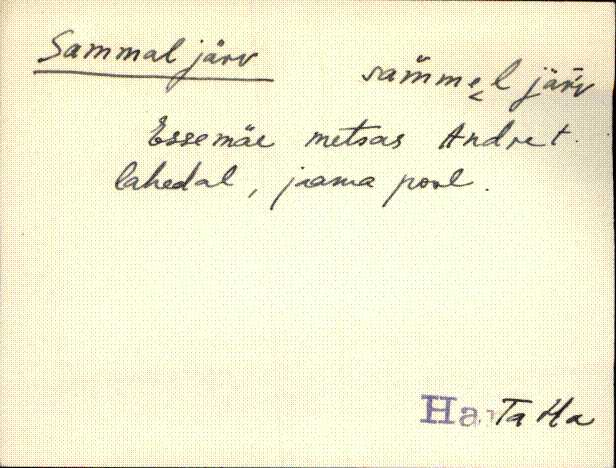 Sammal järv
sämmel järv
Essemäe metsas Andret
lahedal, jaama pool.
Ha TaHa